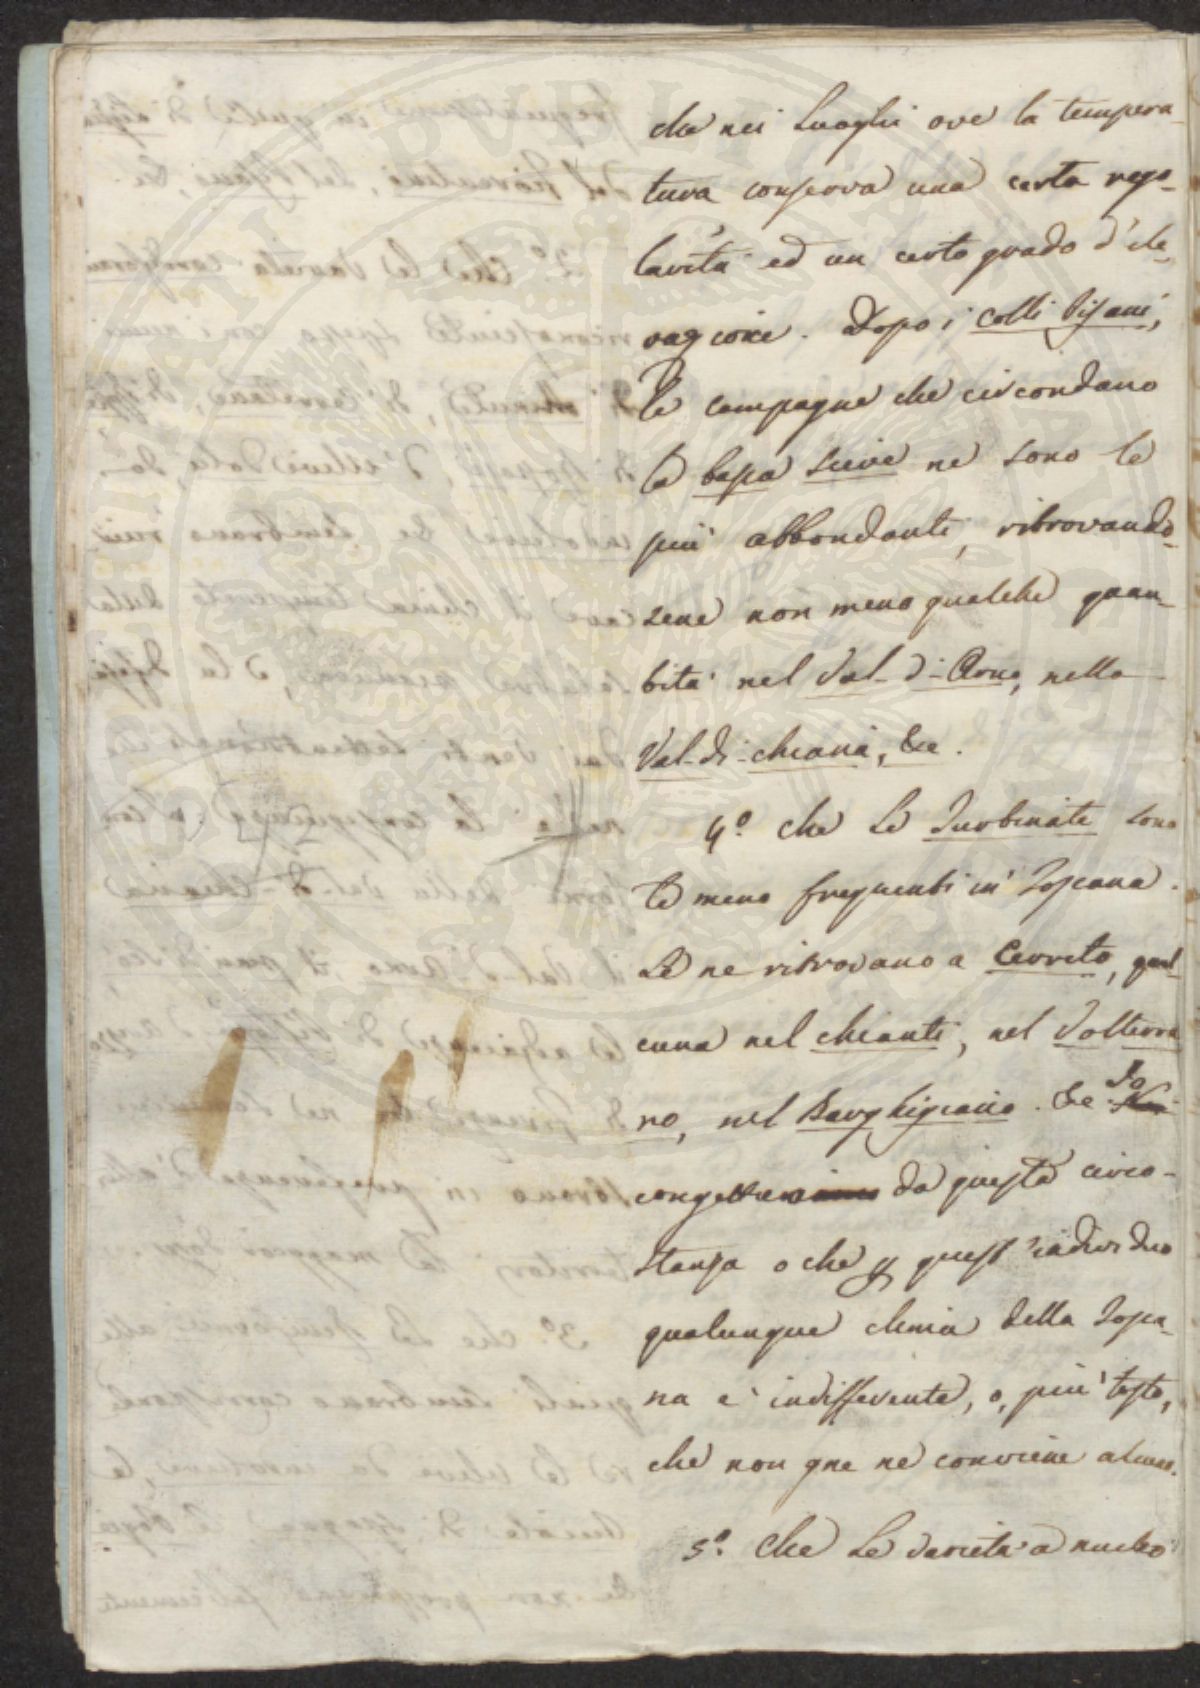 che nei Luoghi ove la tempera-
tura conserva una certa rego-
larità ed un certo grado d'ele-
vazione. Dopo i colli Pisani,
le campagne che circondano
la bassa Sieve ne sono le
più abbondanti, ritrovando-
sene non meno qualche quan-
tità nel Val-d'-Arno, nella
Val-di-chiana, &c.
4.º che Le Turbinate sono
le meno frequenti in Toscana.
Se ne ritrovano a Cerreto, qual-
cuna nel chianti, nel Volterra
no, nel Barghigiano. &c Io
congetturo da questa circo-
stanza o che p quest'individuo
qualunque clima della Tosca-
na e' indifferente, o, più tosto,
che non gne ne conviene alcuno.
5.º Che Le Varietà a nucleo